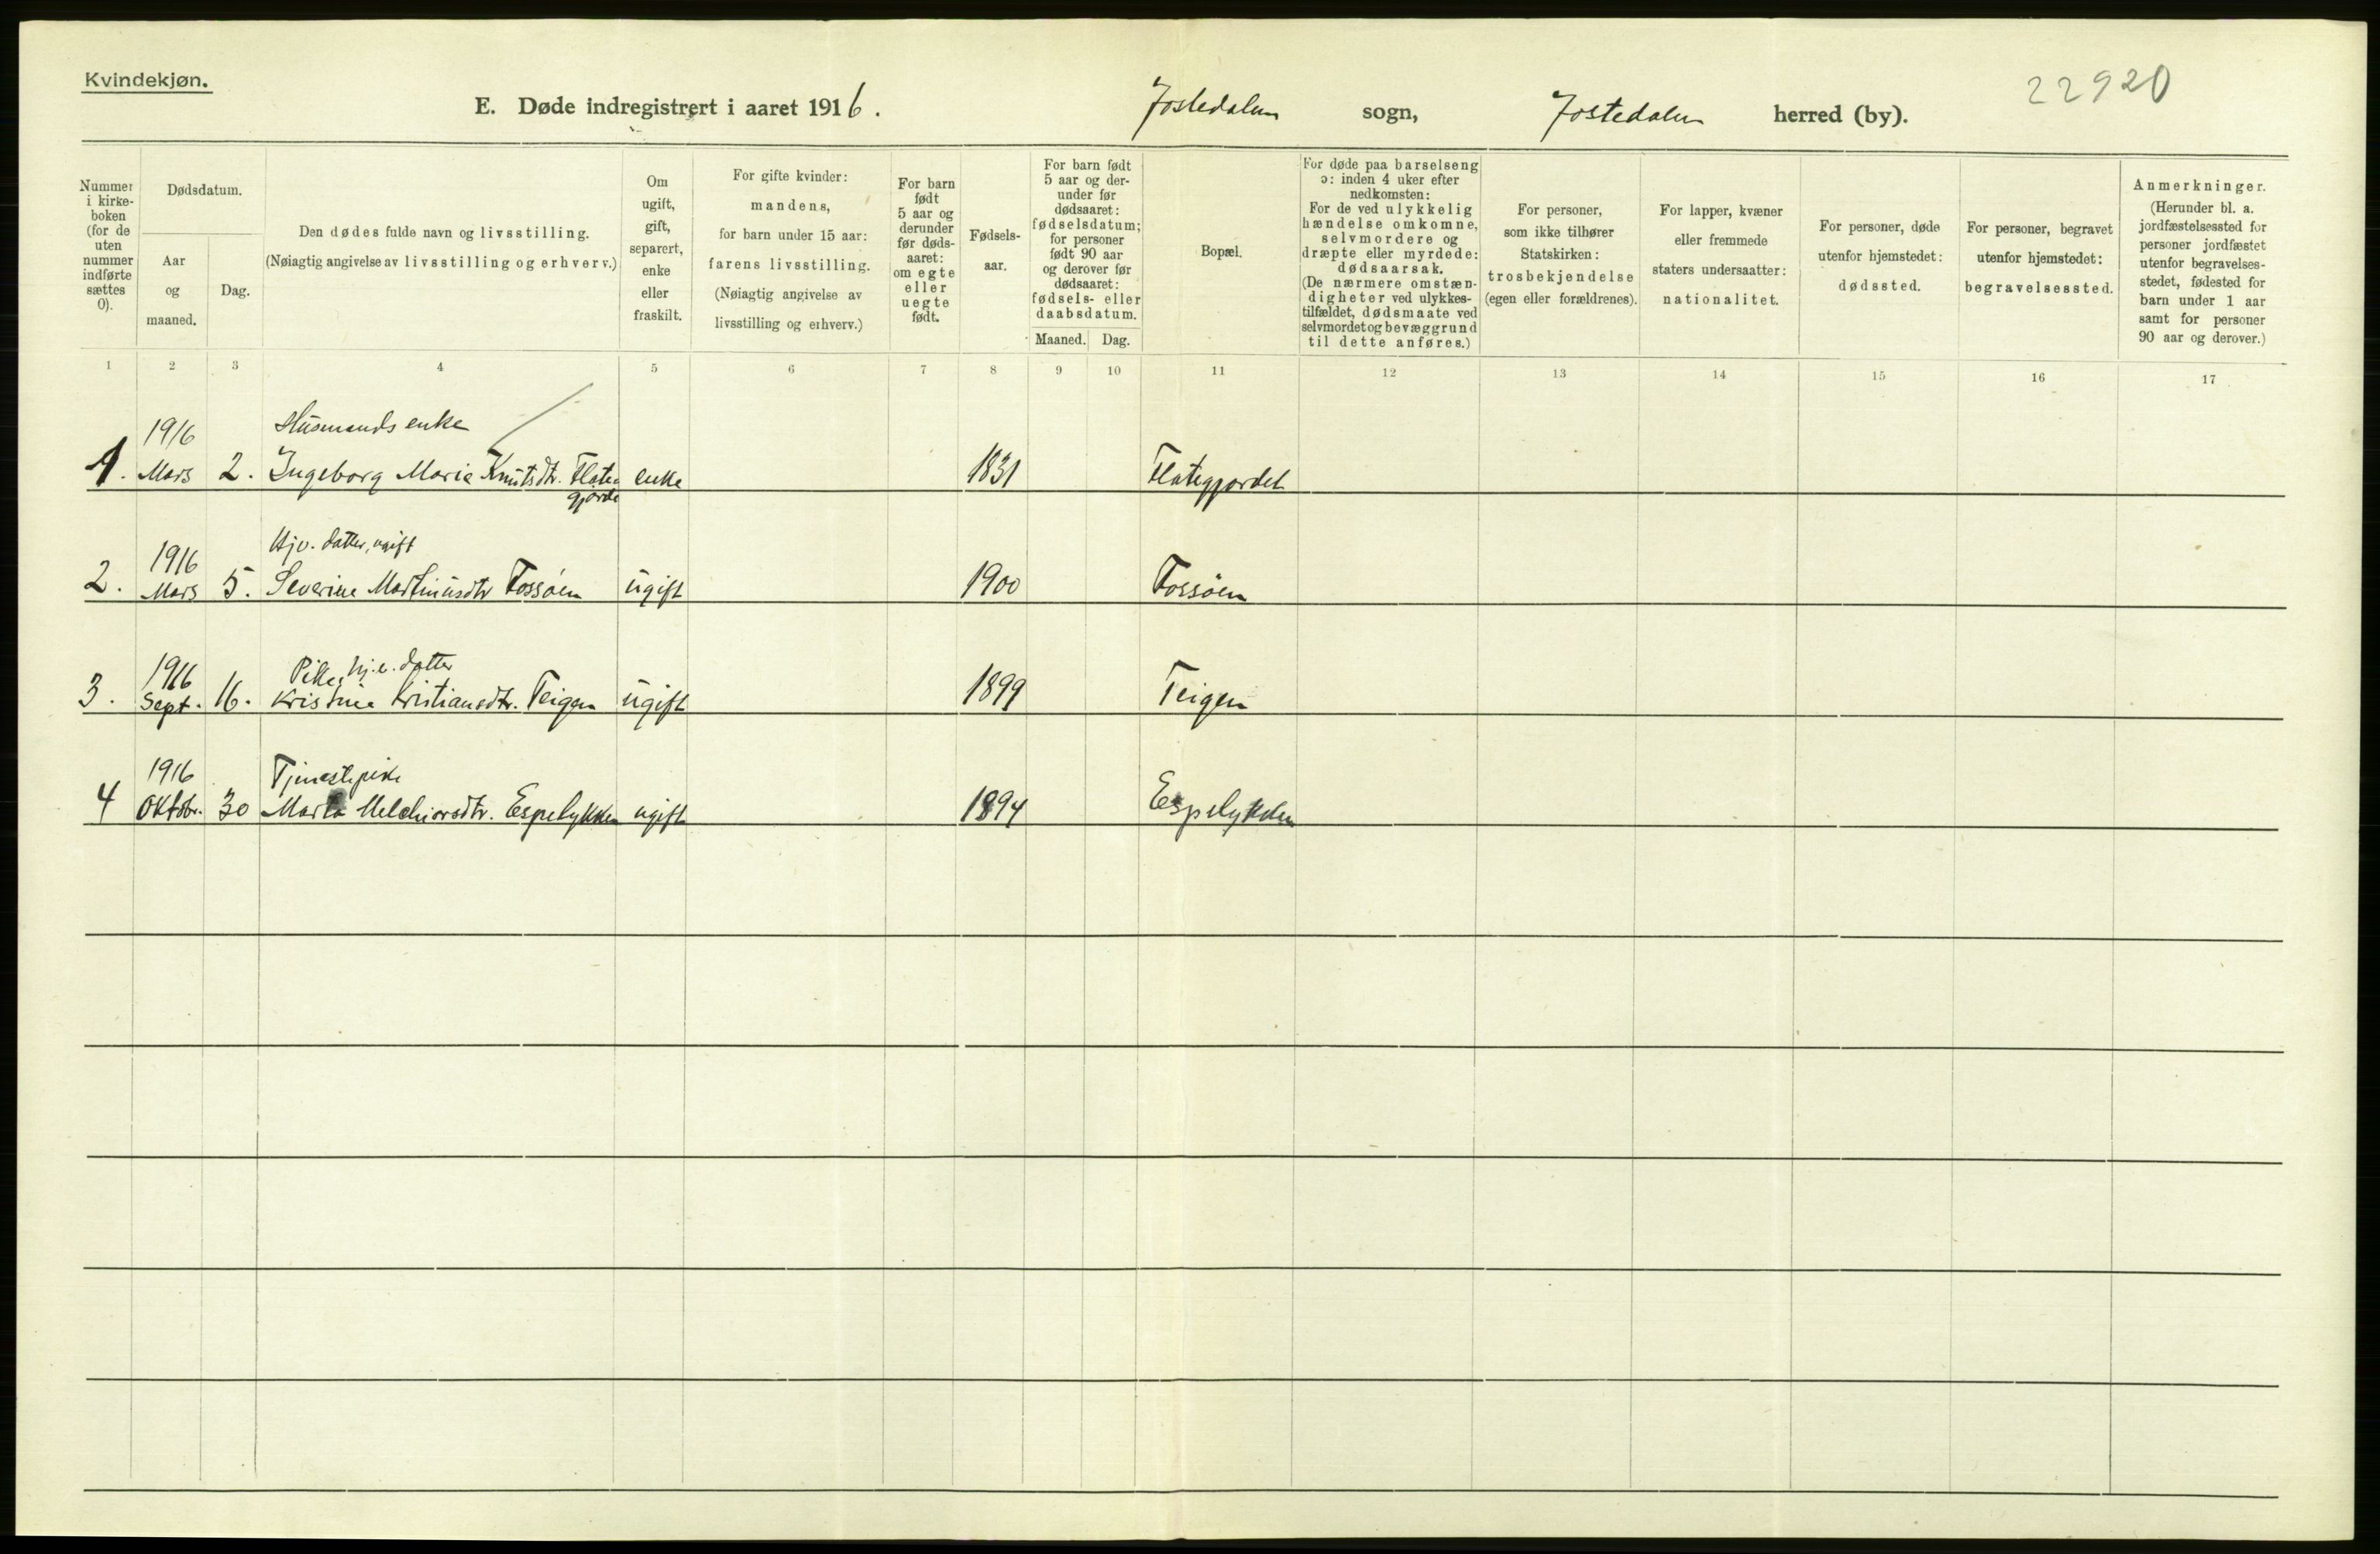 Kvindekjøn.
22920
E. Døde indregistrert i aaret 1916. Jostedalen sogn, Jostedalen herred (by).
Nummer i kirke-boken (for de uten nummer indførte sættes 0).
Dødsdatum.
Aar og maaned.
Dag.
Den dødes fulde navn og livsstilling.
(Nøiagtig angivelse av livsstilling og erhverv.)
Om ugift, gift, separert, enke eller fraskilt.
For gifte kvinder: mandens, for barn under 15 aar: farens livsstilling.
(Nøiagtig angivelse av livsstilling og erhverv.)
For barn født 5 aar og derunder før døds-aaret: om egte eller uegte født.
Fødsels-aar.
For barn født 5 aar og der-under før dødsaaret: fødselsdatum; for personer født 90 aar og derover før dødsaaret: fødsels- eller daabsdatum.
Maaned. Dag.
Bopæl.
For døde paa barselseng ɔ: inden 4 uker efter nedkomsten:
For de ved ulykkelig hændelse omkomne, selvmordere og dræpte eller myrdede: dødsaarsak.
(De nærmere omstæn-digheter ved ulykkes-tilfældet, dødsmaate ved selvmordet og bevæggrund til dette anføres.)
For personer, som ikke tilhører Statskirken: trosbekjendelse (egen eller forældrenes).
For lapper, kvæner eller fremmede staters undersaatter: nationalitet.
For personer, døde utenfor hjemstedet: dødssted.
For personer, begravet utenfor hjemstedet: begravelsessted.
Anmerkninger.
(Herunder bl. a. jordfæstelsessted for personer jordfæstet utenfor begravelses-stedet, fødested for barn under 1 aar samt for personer 90 aar og derover.)
1 2 3 4 5 6 7 8 9 10 11 12 13 14 15 16 17
1916 Husmands enke
1. Mars 2. Ingeborg Marie Knutsdtr. Flate- enke 1831 Flategjordet
gjorde
1916 Hjv. datter, ugift
2. Mars 5. Severine Martinusdtr Fossøen ugift 1900 Fossøen
1916 Pike, hj.v. datter
3. Sept. 16. Kristine Kristiansdtr. Teigen ugift 1899 Teigen
1916 Tjenestepike
4 Oktbr. 30 Marta Melchiorsdtr. Espelykken ugift 1894 Espelykken